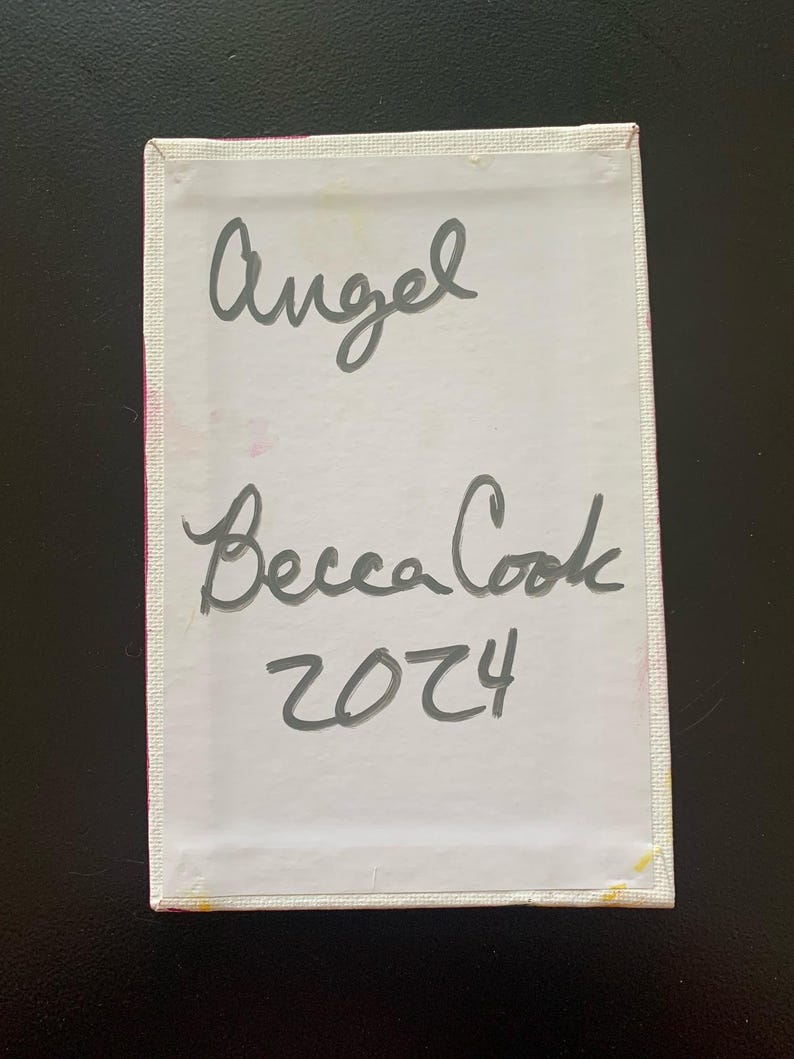 Angel
Becca Cook
2024